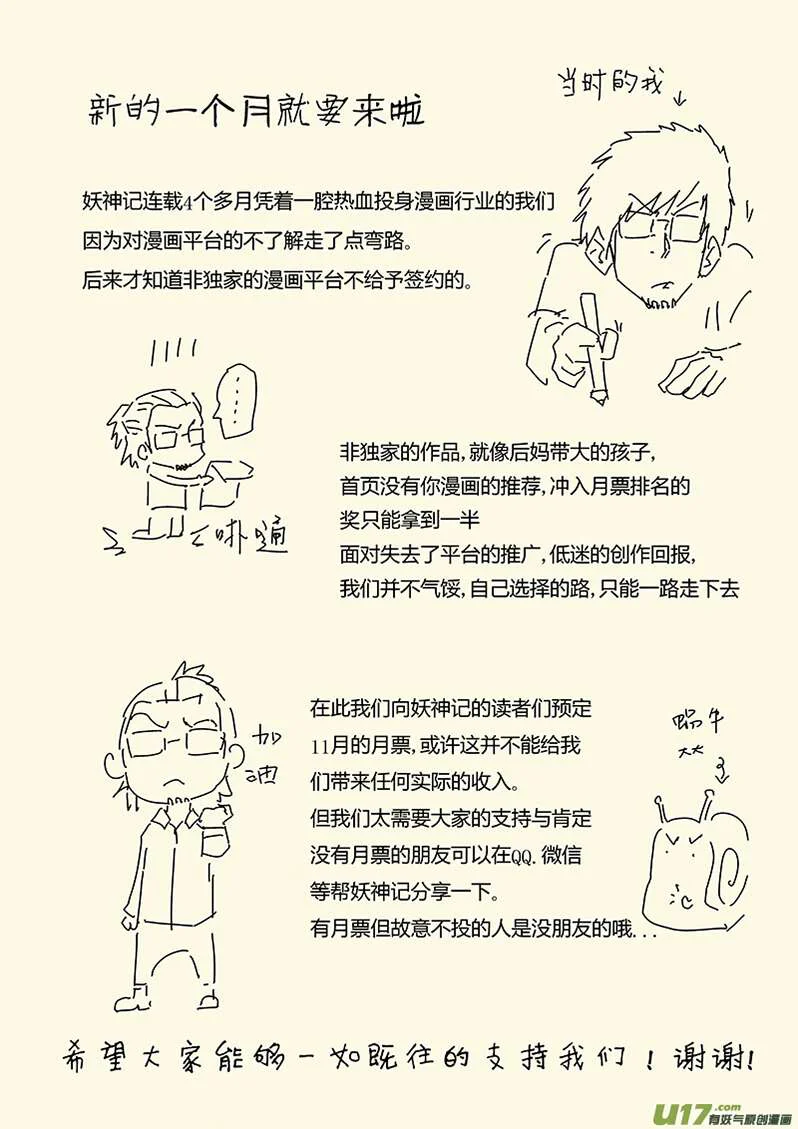 当时的我
新的一个月就要来啦
妖神记连载4个多月凭着一腔热血投身漫画行业的我们
因为对漫画平台的不了解走了点弯路。
后来才知道非独家的漫画平台不给予签约的。
......
非独家的作品,就像后妈带大的孩子,
首页没有你漫画的推荐,冲入月票排名的
奖只能拿到一半
面对失去了平台的推广,低迷的创作回报,
我们并不气馁,自己选择的路,只能一路走下去
在此我们向妖神记的读者们预定
11月的月票,或许这并不能给我
们带来任何实际的收入。
但我们太需要大家的支持与肯定
没有月票的朋友可以在QQ.微信
等帮妖神记分享一下。
有月票但故意不投的人是没朋友的哦...
加
油
蜗牛
希望大家能够一如既往的支持我们!谢谢!
U17.com
有妖气原创漫画